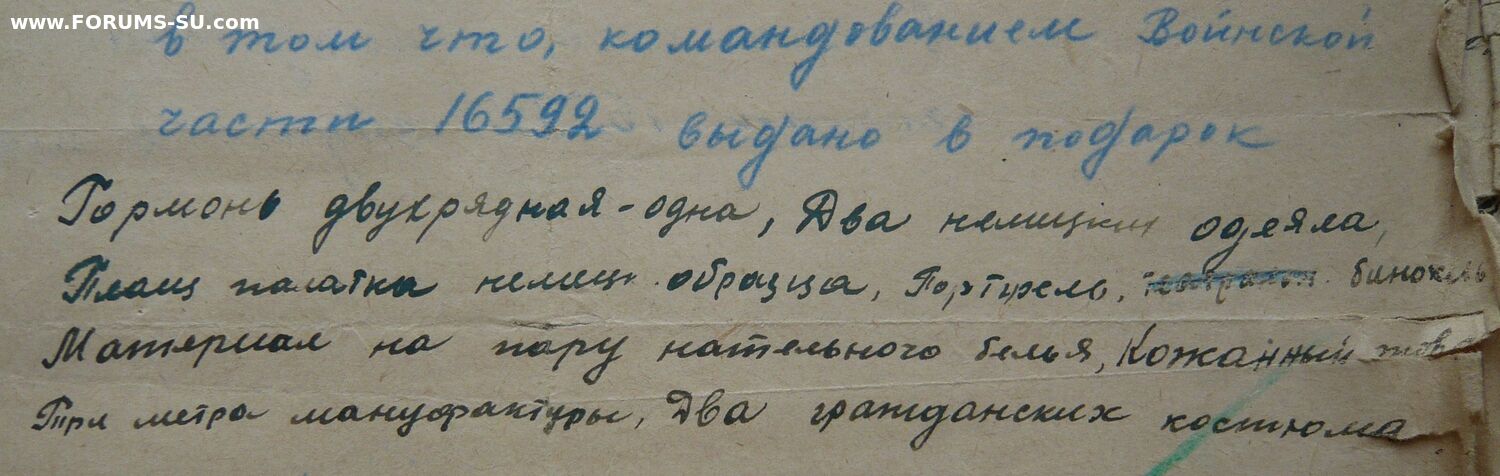 www.FORUMS-SU.com
в том что, командованием Войнской
части 16592 выдано в подарок
Гормонь двухрядная-одна, Два немицких одеяла,
Плащ палатка немицк. образца, Портфель, бинокль
Материал на пару нательного белья, Кожанный
Три метра мануфактуры, Два гражданских костюма